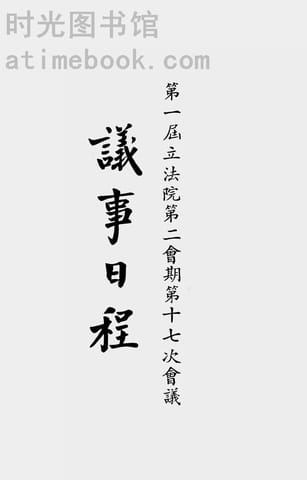 时光图书馆
atimebook.com
第一屆立法院第二會期第十七次會議
議事日程